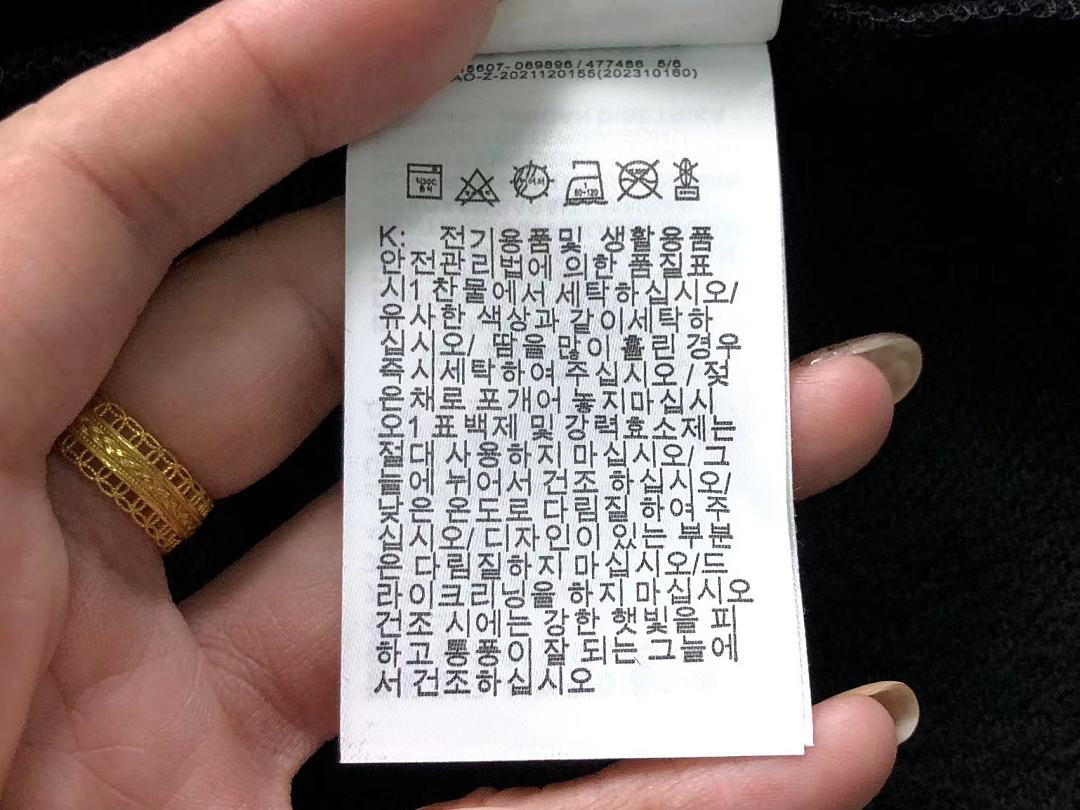 5607-089896/477488 5/6
AO-Z-2021120155(202310160)
K: 전기용품및 생활용품
안전관리법에 의한 품질표
시1 찬물에서 세탁하십시오/
유사한 색상과 같이세탁하
십시오/ 땀을 많이 흘린 경우
즉시세탁하여 주십시오/ 젖
은채로 포개어 놓지마십시
오1 표백제 및 강력효소제는
절대 사용하지 마십시오/ 그
늘에 뉘어서 건조 하십시오/
낮은 온도로 다림질 하여 주
십시오/ 디자인이 있는 부분
은 다림질하지 마십시오/드
라이크리닝을 하지 마십시오
건조 시에는 강한 햇빛을 피
하고 통풍이 잘 되는 그늘에
서 건조하십시오